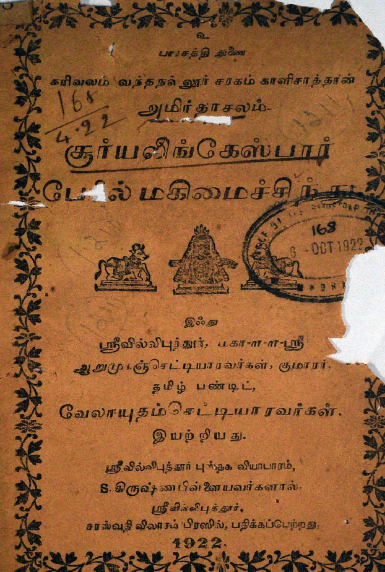 உ
பராசத்தி துணை
கரிவலம் வந்தநல்லூர் சரகம் காளிசாத்தான்
அமிர்தாசலம்
168
4.22
சூர்யலிங்கேஸ்பரர்
பேரில் மகிமைச்சிந்து
168
6 - OCT 1922
இஃது
ஸ்ரீவில்லிபுத்தூர், மகா-ள-ள-ஸ்ரீ
ஆறுமுகஞ்செட்டியாரவர்கள், குமாரர்,
தமிழ் பண்டிட்,
வேலாயுதம்செட்டியாரவர்கள்.
இயற்றியது.
ஸ்ரீவில்லிபுத்தூர் புஸ்தக வியாபாரம்,
S. கிருஷ்ணபிள்ளையவர்களால்.
ஸ்ரீவில்லிபுத்தூர்,
சரஸ்வதி விலாசம் பிரஸில், பதிக்கப்பெற்றது
1922.